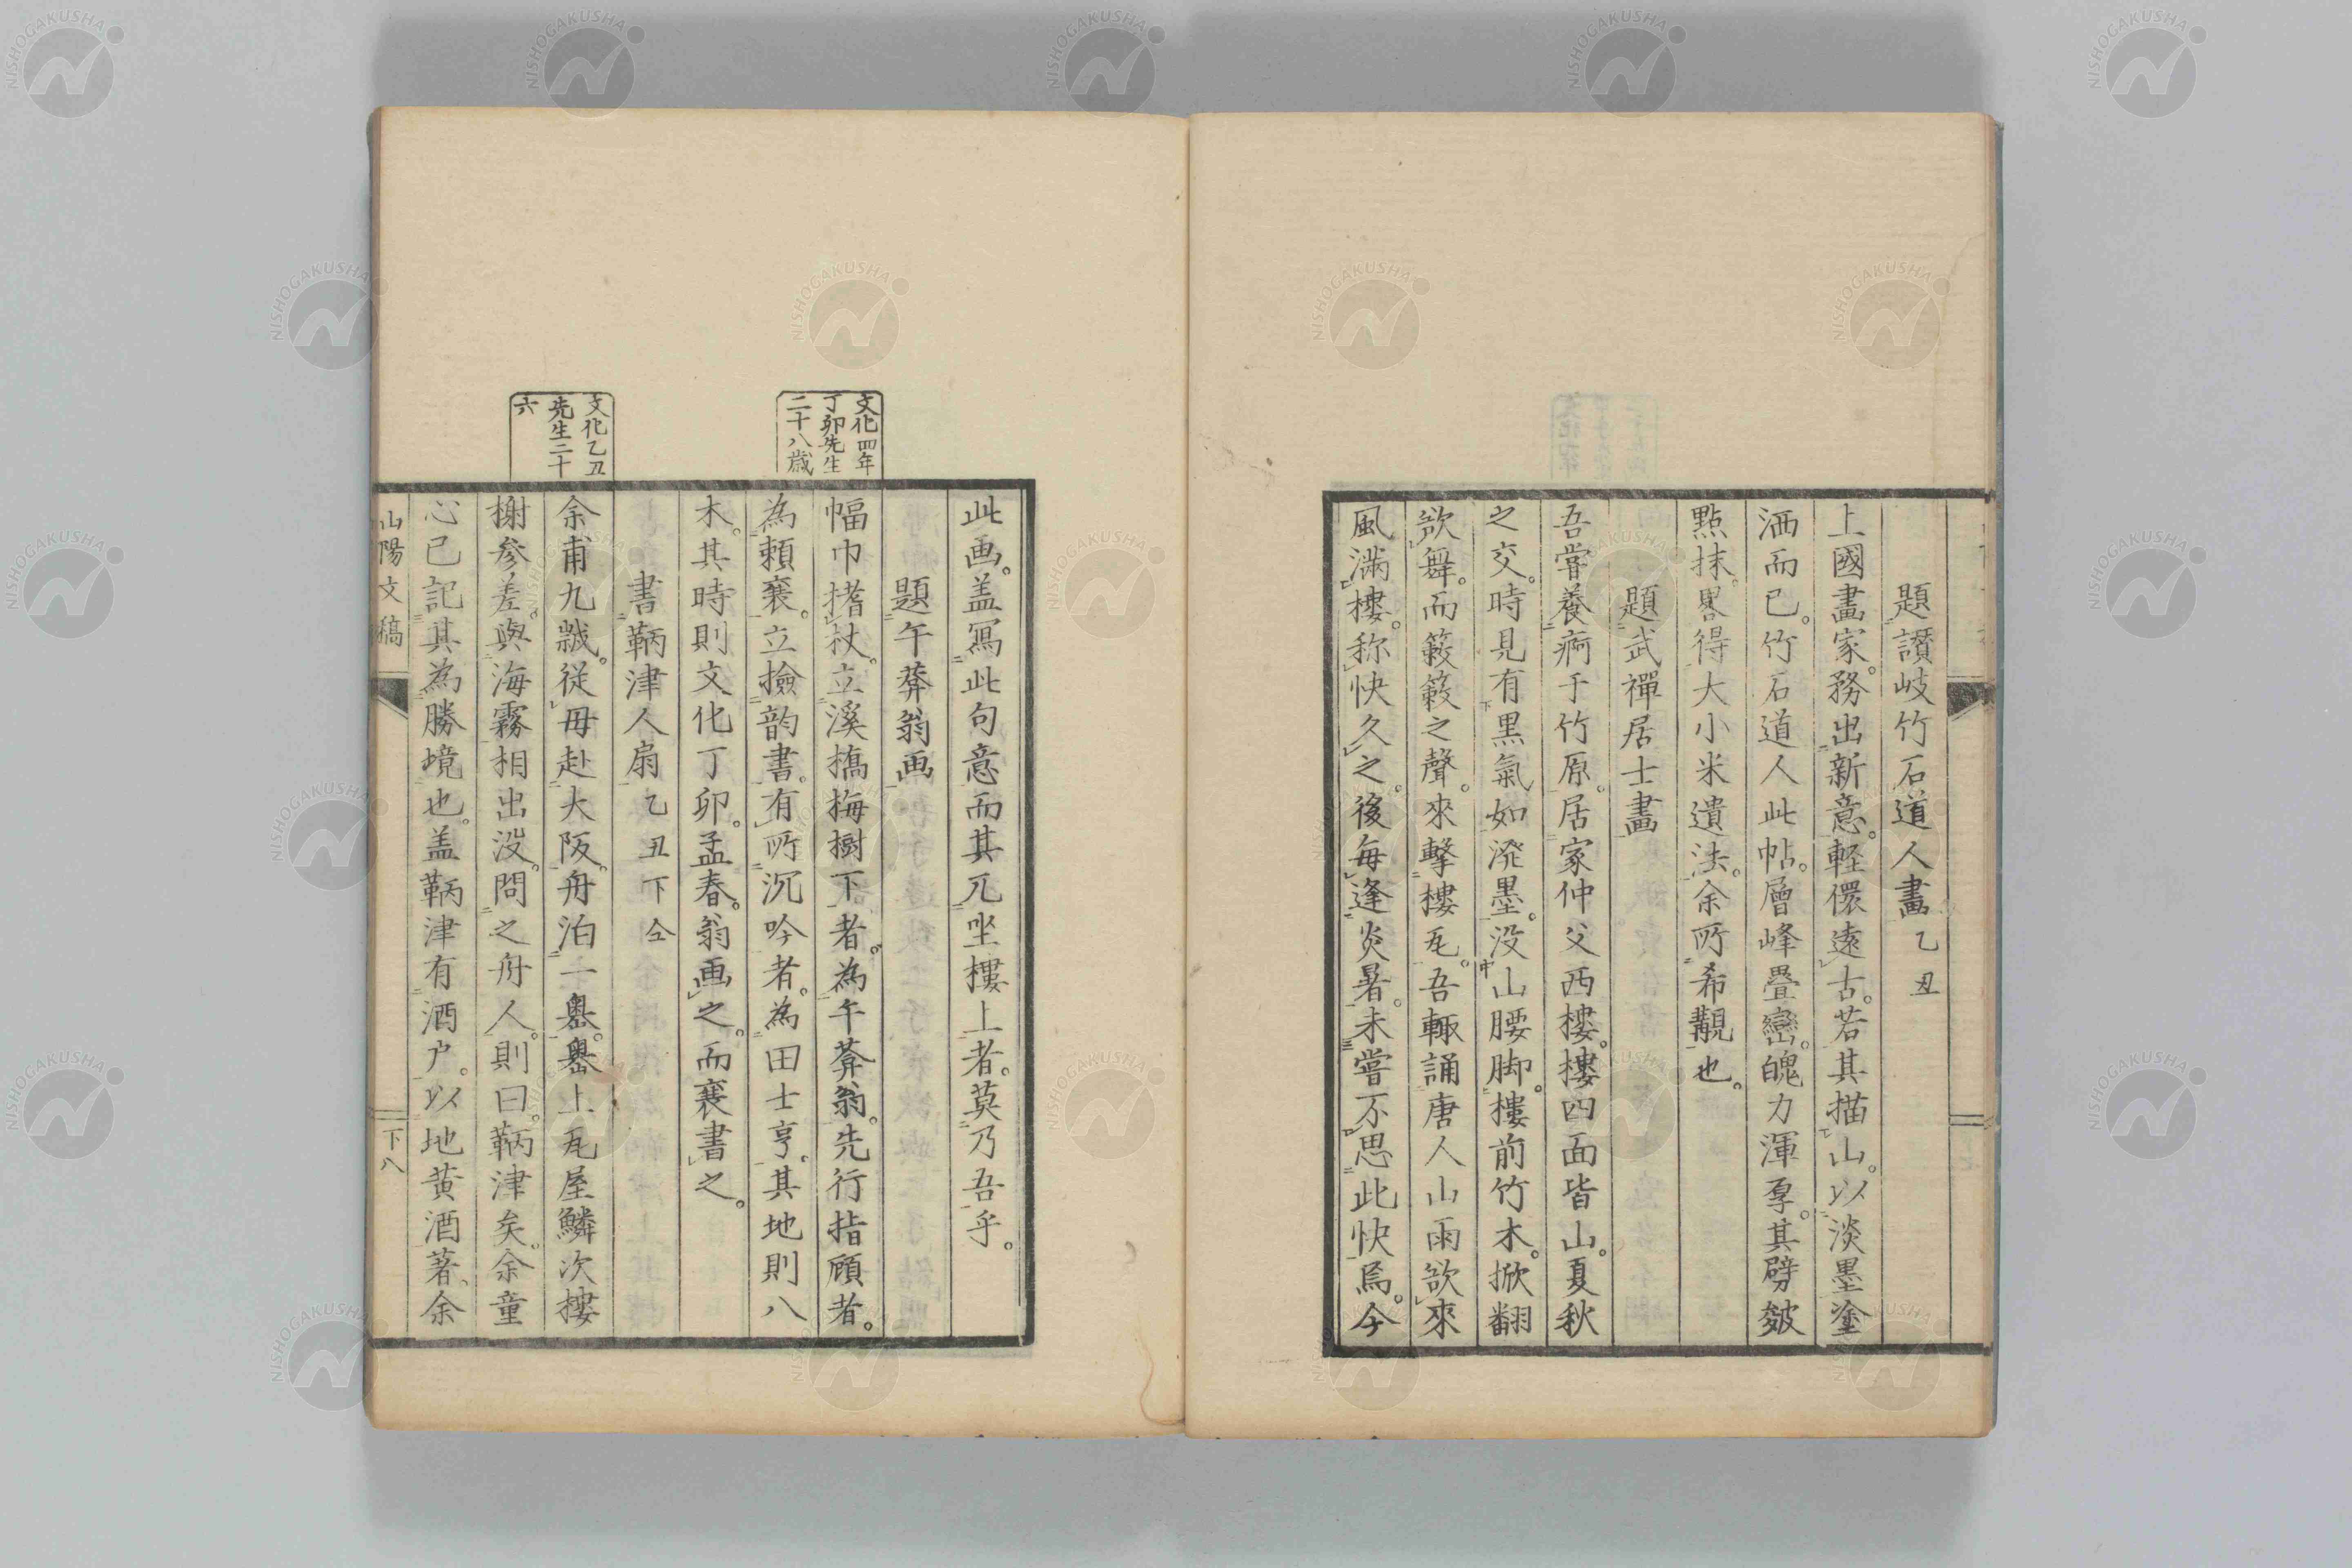 題讃岐竹石道人畫 乙丑
上國畫家。務出新意。輕儇遠古。若其描山。以淡墨塗
洒而已。竹石道人此帖。層峰疊巒。魄力渾厚。其劈皴
點抹。畧得大小米遺法。余所希覯也。
題武禪居士畫
吾嘗養痾于竹原。居家仲父西樓。樓四面皆山。夏秋
之交。時見有黒氣如潑墨。没山腰脚。樓前竹木。掀翻
欲舞。而簌簌之聲。來擊樓瓦。吾輒誦唐人山雨欲來
風滿樓。称快久之。後每逢炎暑。未嘗不思此快焉。今
此画。盖冩此句意而其兀坐樓上者。莫乃吾乎。
題午莽翁画
文化四年
丁卯先生
二十八歳
幅巾搘杖。立溪橋梅樹下者。為午莽翁。先行指顧者。
為頼襄。立撿韵書。有所沉吟者。為田士亨。其地則八
木。其時則文化丁卯。孟春。翁画之。而襄書之。
書鞆津人扇 乙丑下仝
文化乙丑
先生二十
六
余甫九歳。従毋赴大阪。舟泊一嶴。嶴上瓦屋鱗次樓
榭参差。與海霧相出没。問之舟人。則曰。鞆津矣。余童
心已記其為勝境也。盖鞆津有酒户。以地黄酒著、余
山陽文稿
下八
NISHOGAKUSHA